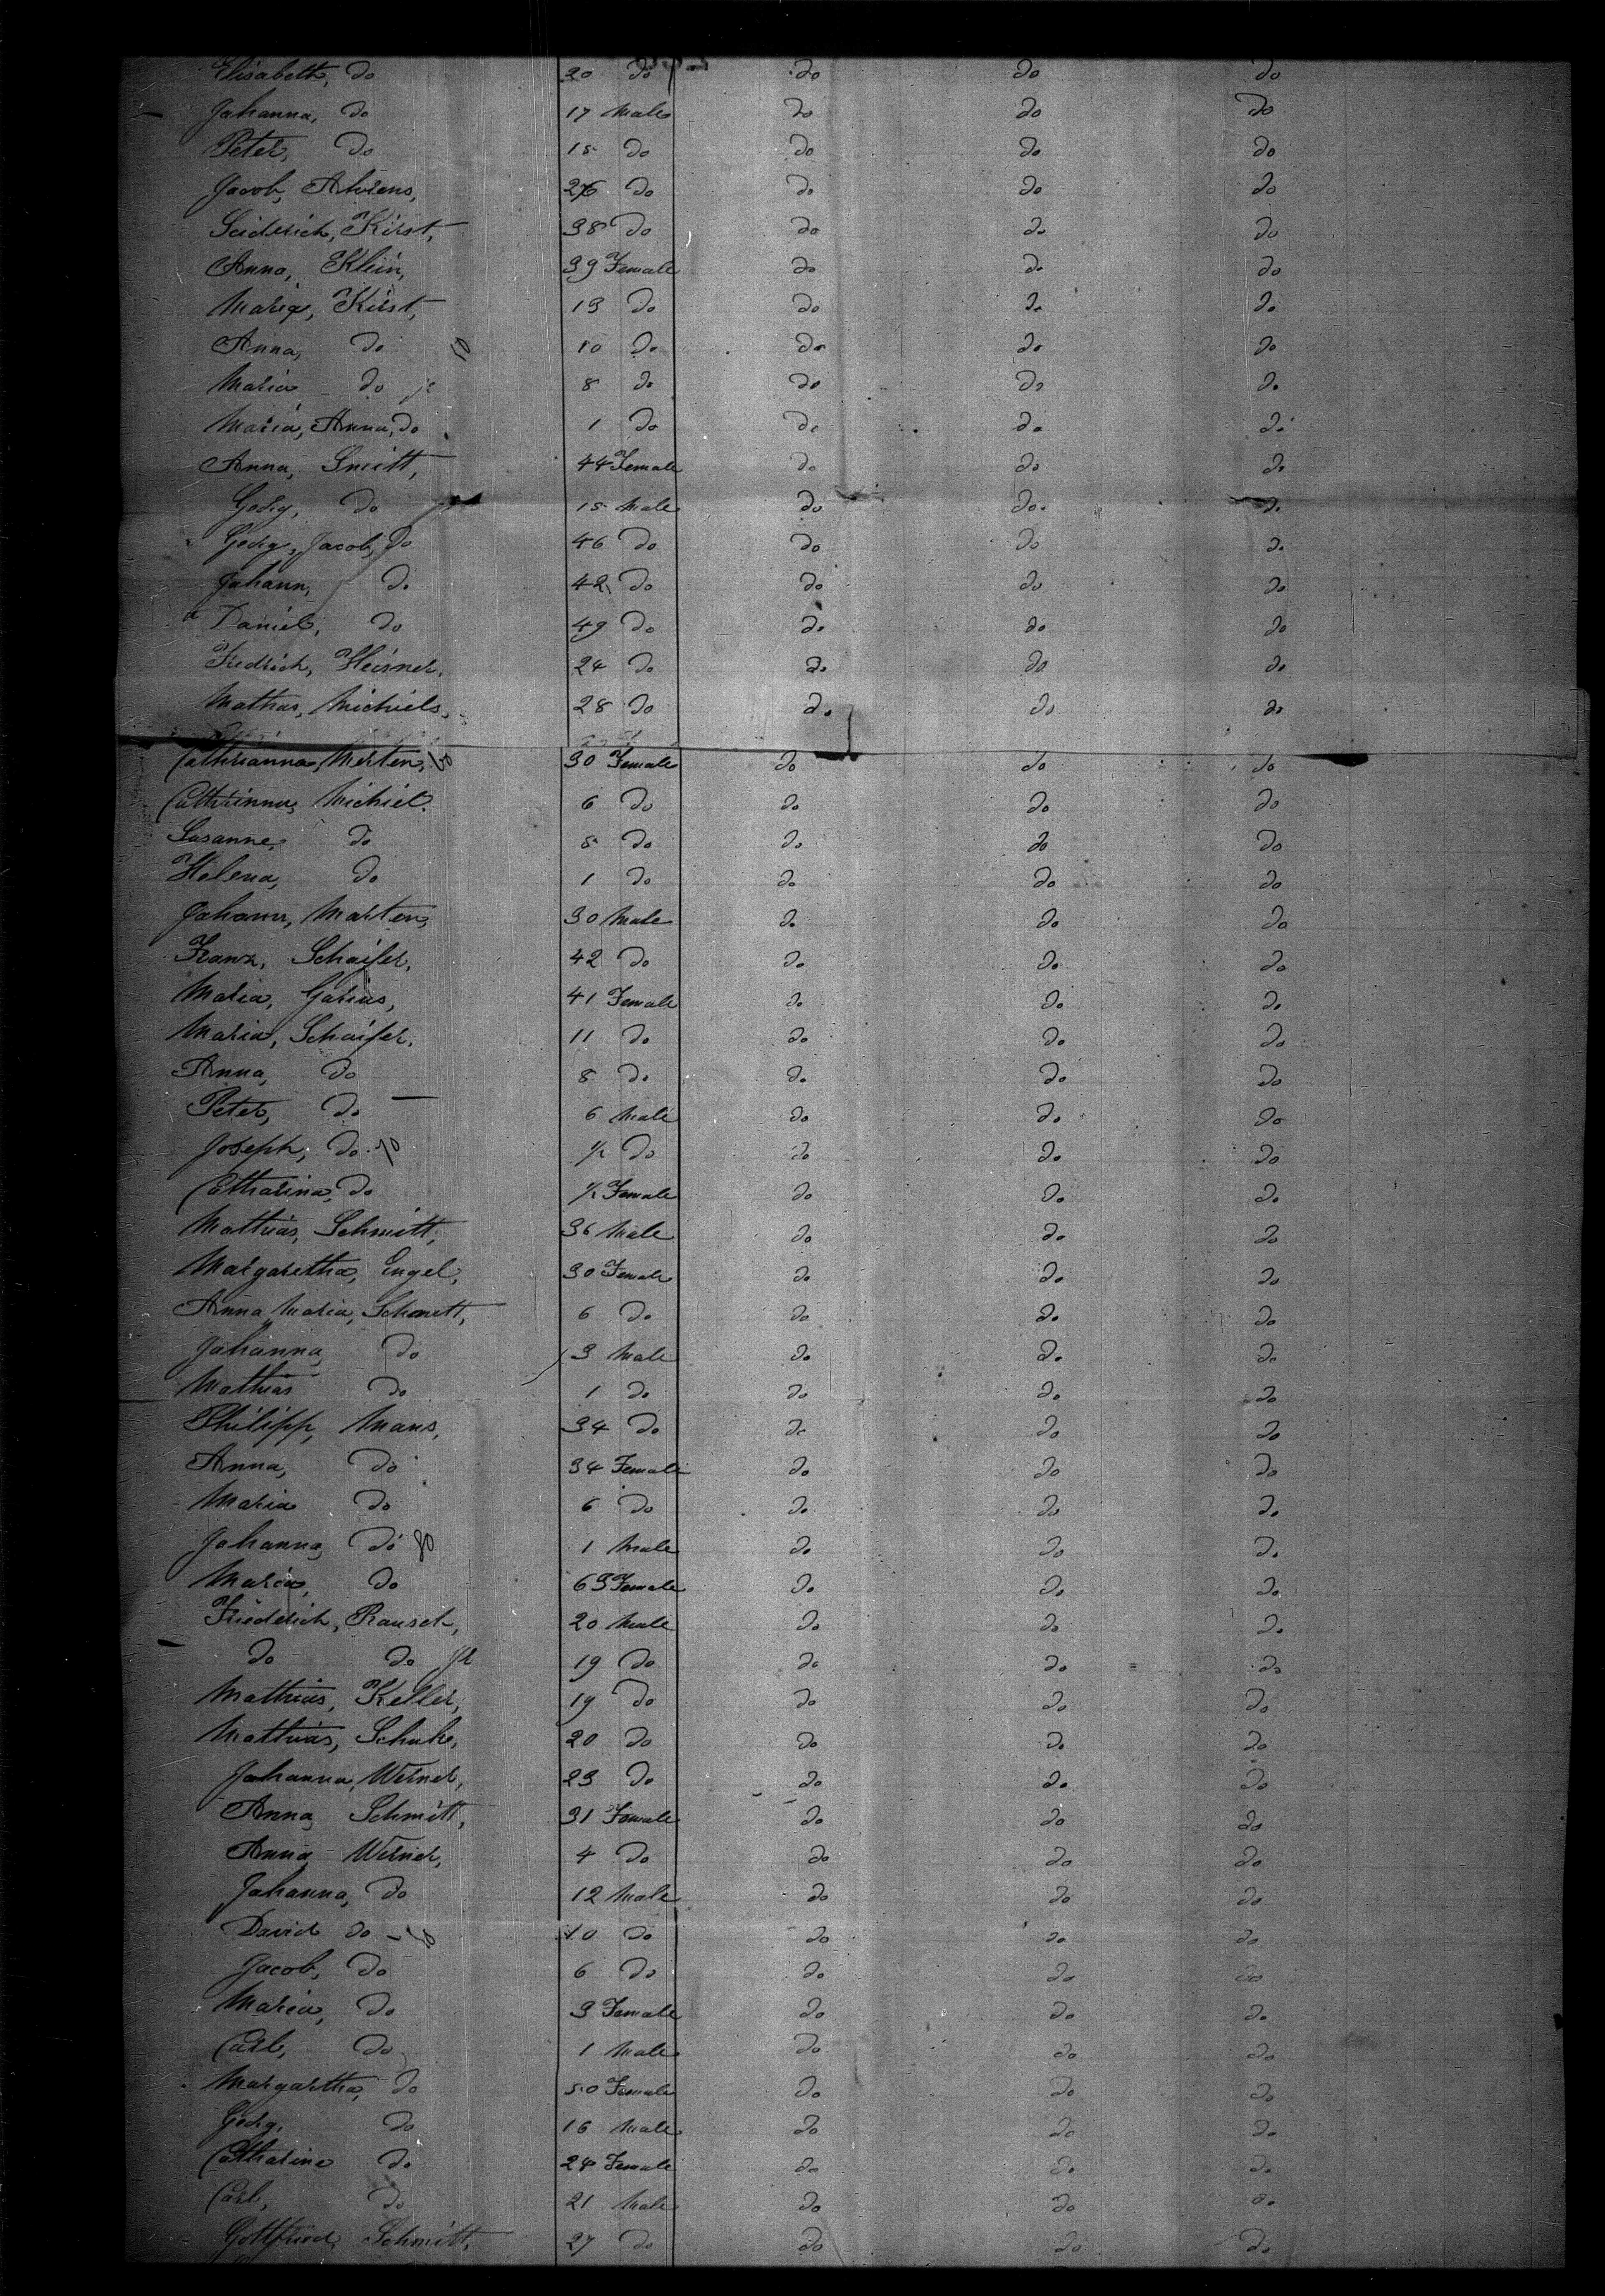 Elisabeth, do 20 do do do do
Johanna, do 17 Male do do do
Peter, do 15 do do do do
Jacob, Ahrens, 26 do do do do
Seiderich, Kirst, 38 do do do do
Anna, Klein, 39 Female do do do
Maria, Kirst, 13 do do do do
Anna, do 10 do do do do
Maria do jr 8 do do do do
Maria, Anna, do 1 do do do do
Anna, Smitt, 44 Female do do do
Georg, do 15 Male do do do
Georg, Jacob, do 46 do do do do
Johann, do 42 do do do do
Daniel, do 49 do do do do
Fredrich, Heisner, 24 do do do do
Mathias, Michiels, 28 do do do do
Cathrianna, Merten, 30 Female do do do
Cathrinna, Michiel. 6 do do do do
Susanne, do 5 do do do do
Helena, do 1 do do do do
Johann, Marten, 30 Male do do do
Franz, Schaifer, 42 do do do do
Maria, Garius, 41 Female do do do
Maria, Schaifer. 11 do do do do
Anna, do 8 do do do do
Peter, do 6 Male do do do
Joseph, do 70 1/2 do do do do
Catharina, do 1/2 Female do do do
Mathias, Schmitt, 36 Male do do do
Margaretha, Engel, 30 Female do do do
Anna Maria, Schmitt, 6 do do do do
Johanna, do 3 Male do do do
Mathias do 1 do do do do
Philipp, Mans, 34 do do do do
Anna, do 34 Female do do do
Maria do 6 do do do do
Johanna, do 80 1 Male do do do
Maria, do 63 Female do do do
Friederich, Rausch, 20 Male do do do
do do jr 19 do do do do
Mathias, Keller, 19 do do do do
Mathias, Schuh, 20 do do do do
Johanna, Werner, 23 do do do do
Anna, Schmitt, 31 Female do do do
Anna Werner, 4 do do do do
Johanna, do 12 Male do do do
David do 10 do do do do
Jacob, do 6 do do do do
Maria, do 3 Female do do do
Carl, do 1 Male do do do
Margartha, do 50 Female do do do
Georg, do 16 Male do do do
Catharine do 24 Female do do do
Carl, do 21 Male do do do
Gottfried, Schmitt, 27 do do do do